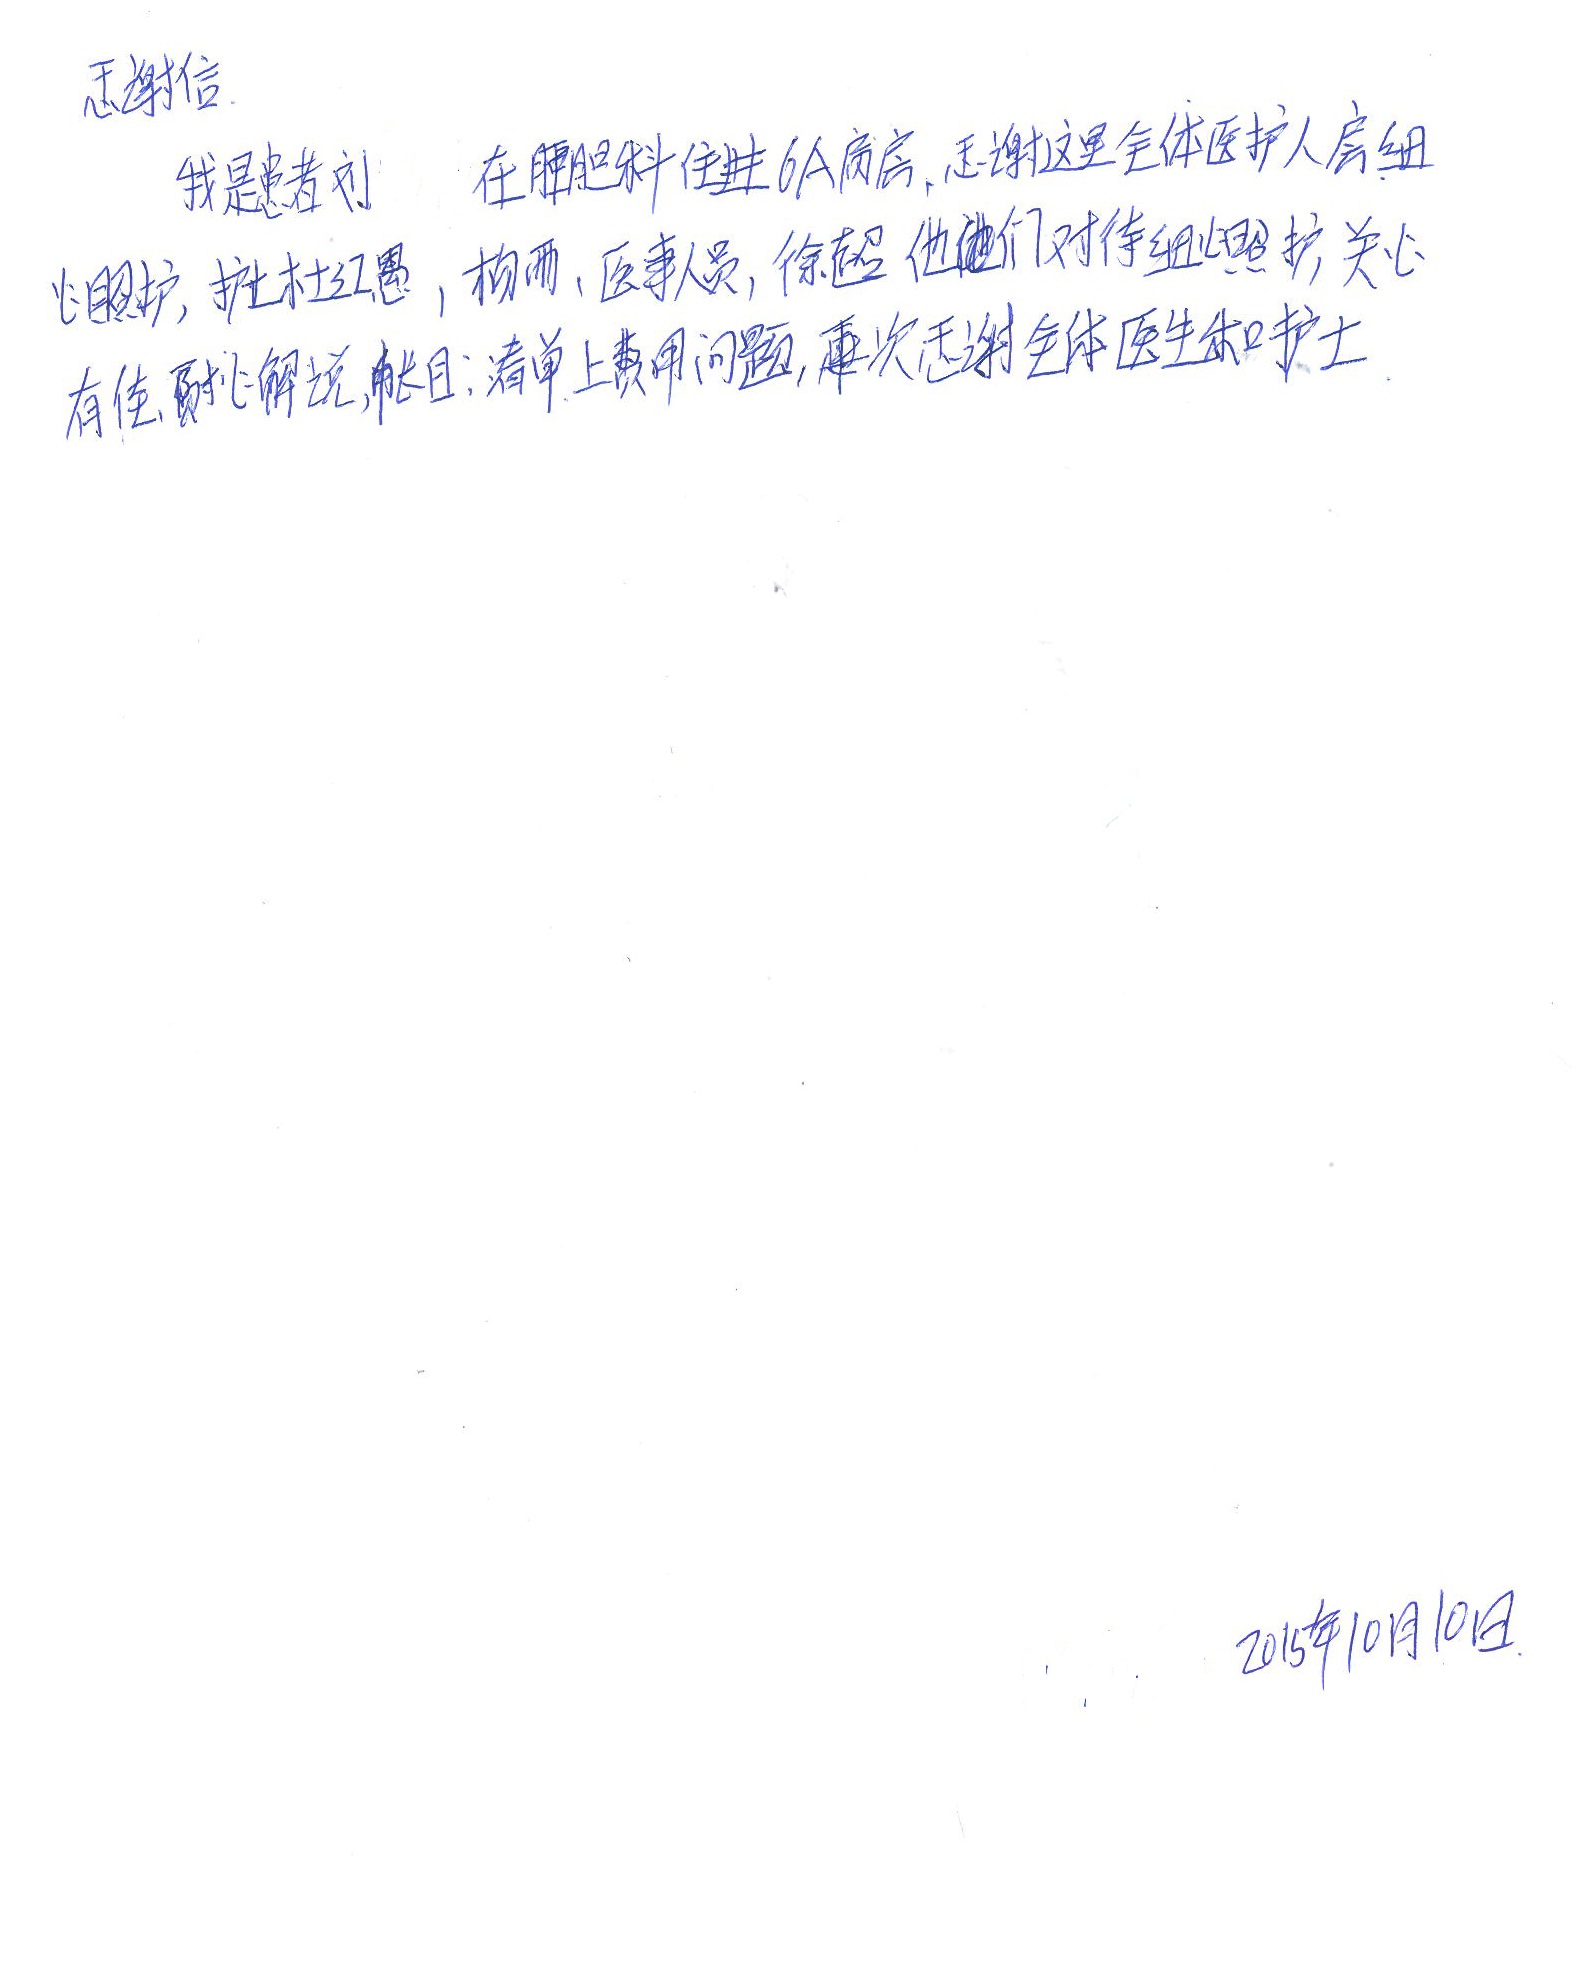 感谢信.
我是患者刘 在肝胆科住进6A病房,感谢这里全体医护人员细
心照护,护士杜红愚,梅西、医事人员,徐超他们对待细心照护,关心
有佳、耐心解说,帐目;清单上费用问题,再次感谢全体医生和护士.
2015年10月10日.